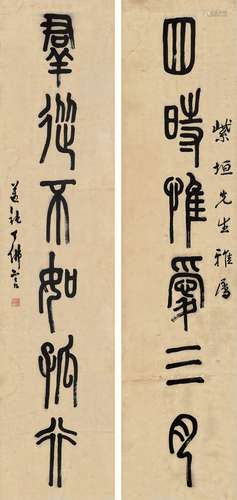 四時惟愛三月
紫垣先生雅屬
羣從不如孤行
丁佛言